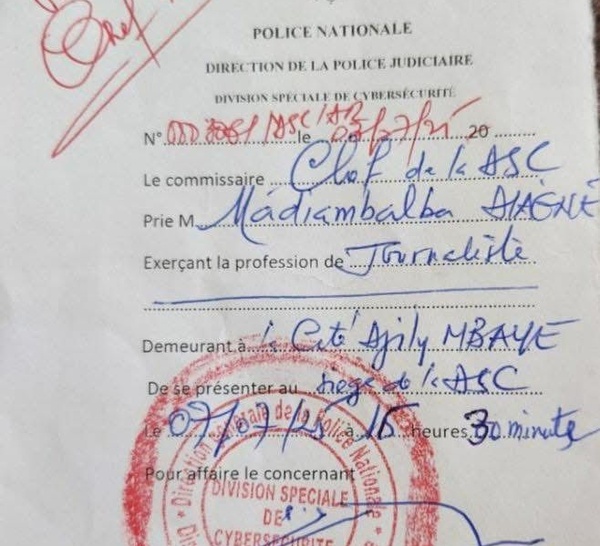 Chef
POLICE NATIONALE
DIRECTION DE LA POLICE JUDICIAIRE
DIVISION SPECIALE DE CYBERSÉCURITÉ
N° /ASC/ le 07/07/25 20
Le commissaire Chef de la ASC
Prie M Madiambalba DIAGNE
Exerçant la profession de Journaliste
Demeurant à la Cité Djily MBAYE
De se présenter au siège de la ASC
Le 07/07/25 à 15 heures 30 minute
Pour affaire le concernant
Direction spéciale de la Police Nationale
DIVISION SPECIALE
DE
CYBERSECURITE